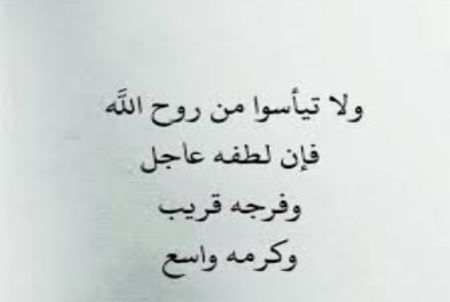 ولا تيأسوا من روح اللَّه
فإن لطفه عاجل
وفرجه قريب
وكرمه واسع